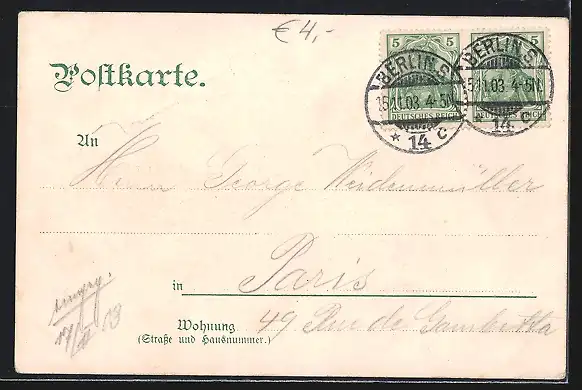 € 4,-
Postkarte.
5 5 5 5
BERLIN S. BERLIN S.
15.11.03 4-5N. 15.11.03 4-5N.
DEUTSCHES REICH DEUTSCHES REICH
* 14 c * 14 c
An
Herrn George Weidenmüller
in Paris
Wohnung 49 Rue de Gambetta
(Straße und Hausnummer.)